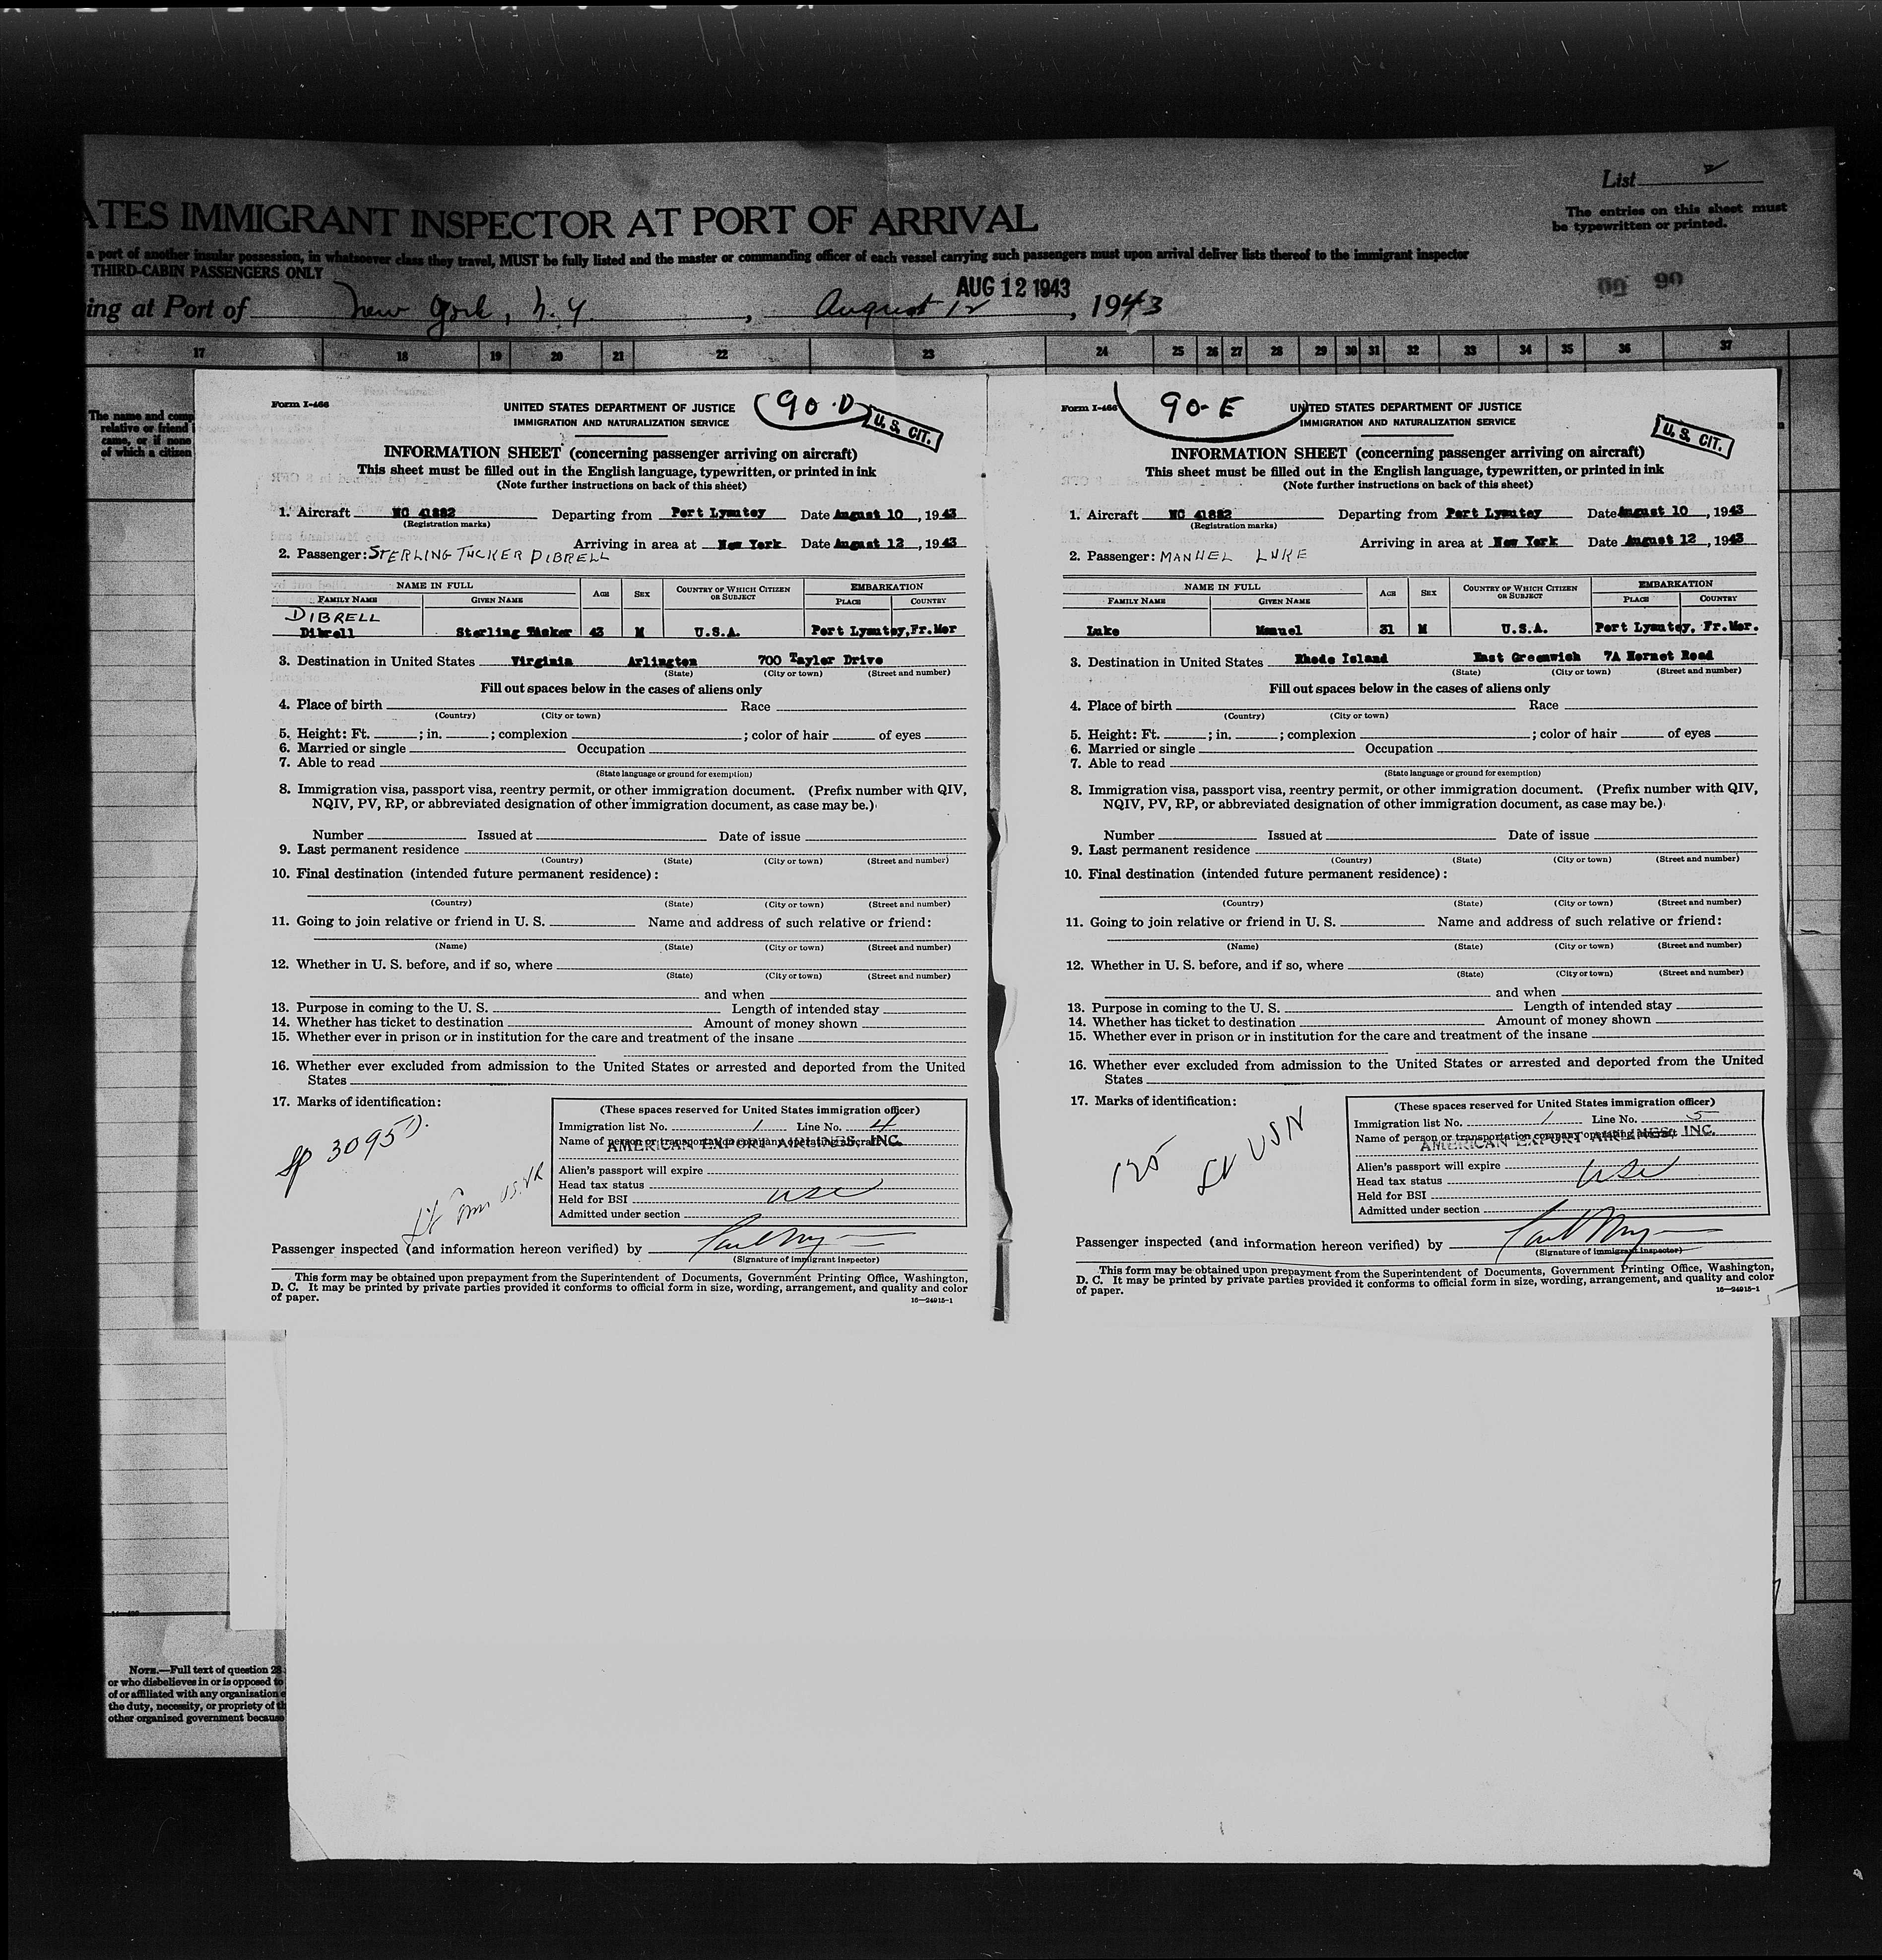 List
ATES IMMIGRANT INSPECTOR AT PORT OF ARRIVAL
The entries on this sheet must
be typewritten or printed.
a port of another insular possession, in whatsoever class they travel, MUST be fully listed and the master or commanding officer of each vessel carrying such passengers must upon arrival deliver lists thereof to the immigrant inspector
THIRD-CABIN PASSENGERS ONLY
AUG 12 1943
90
ing at Port of New York, N.Y., August 12, 1943
17 18 19 20 21 22 23 24 25 26 27 28 29 30 31 32 33 34 35 36 37
The name and comp
relative or friend
came, or if none
of which a citizen
Form I-466
UNITED STATES DEPARTMENT OF JUSTICE
90-D
U. S. CIT.
IMMIGRATION AND NATURALIZATION SERVICE
INFORMATION SHEET (concerning passenger arriving on aircraft)
This sheet must be filled out in the English language, typewritten, or printed in ink
(Note further instructions on back of this sheet)
1. Aircraft NC 41882 Departing from Port Lyautey Date August 10, 1943
(Registration marks)
Arriving in area at New York Date August 12, 1943
2. Passenger: STERLING TUCKER DIBRELL
NAME IN FULL AGE SEX COUNTRY OF WHICH CITIZEN OR SUBJECT EMBARKATION
FAMILY NAME GIVEN NAME PLACE COUNTRY
DIBRELL
Dibrell Sterling Tucker 43 M U.S.A. Port Lyautey, Fr.Mor
3. Destination in United States Virginia Arlington 700 Taylor Drive
(State) (City or town) (Street and number)
Fill out spaces below in the cases of aliens only
4. Place of birth Race
(Country) (City or town)
5. Height: Ft. ; in. ; complexion ; color of hair of eyes
6. Married or single Occupation
7. Able to read
(State language or ground for exemption)
8. Immigration visa, passport visa, reentry permit, or other immigration document. (Prefix number with QIV,
NQIV, PV, RP, or abbreviated designation of other immigration document, as case may be.)
Number Issued at Date of issue
9. Last permanent residence
(Country) (State) (City or town) (Street and number)
10. Final destination (intended future permanent residence):
(Country) (State) (City or town) (Street and number)
11. Going to join relative or friend in U. S. Name and address of such relative or friend:
(Name) (State) (City or town) (Street and number)
12. Whether in U. S. before, and if so, where
(State) (City or town) (Street and number)
and when
13. Purpose in coming to the U. S. Length of intended stay
14. Whether has ticket to destination Amount of money shown
15. Whether ever in prison or in institution for the care and treatment of the insane
16. Whether ever excluded from admission to the United States or arrested and deported from the United
States
17. Marks of identification:
(These spaces reserved for United States immigration officer)
Immigration list No. 1 Line No. 4
Name of person or transportation company operating aircraft
AMERICAN EXPORT AIRLINES, INC.
Alien's passport will expire
Head tax status
Held for BSI USC
Admitted under section
Sp 3095D.
Passenger inspected (and information hereon verified) by
(Signature of immigrant inspector)
This form may be obtained upon prepayment from the Superintendent of Documents, Government Printing Office, Washington,
D. C. It may be printed by private parties provided it conforms to official form in size, wording, arrangement, and quality and color
of paper.
16—24915-1
Form I-466
90-E
UNITED STATES DEPARTMENT OF JUSTICE
IMMIGRATION AND NATURALIZATION SERVICE
U. S. CIT.
INFORMATION SHEET (concerning passenger arriving on aircraft)
This sheet must be filled out in the English language, typewritten, or printed in ink
(Note further instructions on back of this sheet)
1. Aircraft NC 41882 Departing from Port Lyautey Date August 10, 1943
(Registration marks)
Arriving in area at New York Date August 12, 1943
2. Passenger: MANUEL LUKE
NAME IN FULL AGE SEX COUNTRY OF WHICH CITIZEN OR SUBJECT EMBARKATION
FAMILY NAME GIVEN NAME PLACE COUNTRY
Luke Manuel 31 M U.S.A. Port Lyautey, Fr.Mor.
3. Destination in United States Rhode Island East Greenwich 7A Hornet Road
(State) (City or town) (Street and number)
Fill out spaces below in the cases of aliens only
4. Place of birth Race
(Country) (City or town)
5. Height: Ft. ; in. ; complexion ; color of hair of eyes
6. Married or single Occupation
7. Able to read
(State language or ground for exemption)
8. Immigration visa, passport visa, reentry permit, or other immigration document. (Prefix number with QIV,
NQIV, PV, RP, or abbreviated designation of other immigration document, as case may be.)
Number Issued at Date of issue
9. Last permanent residence
(Country) (State) (City or town) (Street and number)
10. Final destination (intended future permanent residence):
(Country) (State) (City or town) (Street and number)
11. Going to join relative or friend in U. S. Name and address of such relative or friend:
(Name) (State) (City or town) (Street and number)
12. Whether in U. S. before, and if so, where
(State) (City or town) (Street and number)
and when
13. Purpose in coming to the U. S. Length of intended stay
14. Whether has ticket to destination Amount of money shown
15. Whether ever in prison or in institution for the care and treatment of the insane
16. Whether ever excluded from admission to the United States or arrested and deported from the United
States
17. Marks of identification:
(These spaces reserved for United States immigration officer)
Immigration list No. 1 Line No. 5
Name of person or transportation company operating aircraft
AMERICAN EXPORT AIRLINES, INC.
Alien's passport will expire
Head tax status USC
Held for BSI
Admitted under section
125
Lt USN
Passenger inspected (and information hereon verified) by
(Signature of immigrant inspector)
This form may be obtained upon prepayment from the Superintendent of Documents, Government Printing Office, Washington,
D. C. It may be printed by private parties provided it conforms to official form in size, wording, arrangement, and quality and color
of paper.
16—24915-1
NOTE.—Full text of question 28
or who disbelieves in or is opposed to
of or affiliated with any organization
the duty, necessity, or propriety of th
other organized government because